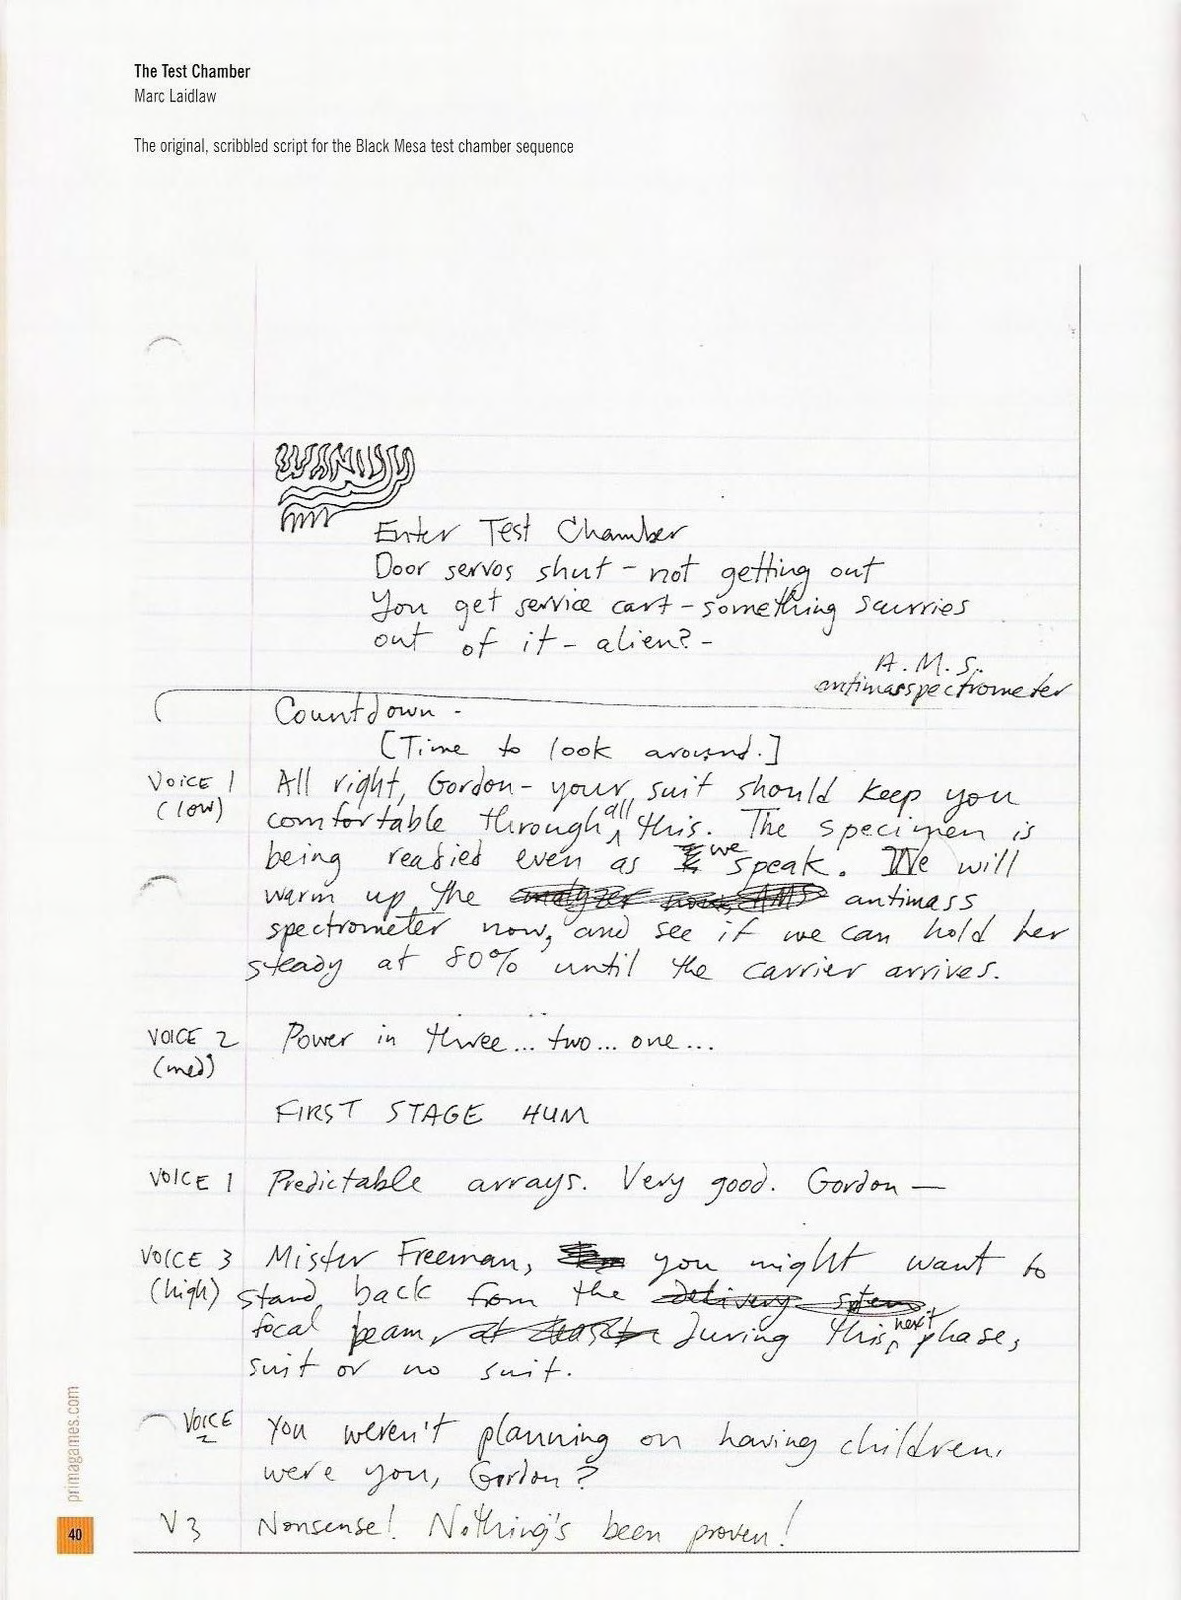 The Test Chamber
Marc Laidlaw
The original, scribbled script for the Black Mesa test chamber sequence
Enter Test Chamber
Door servos shut - not getting out
You get service cart - something scurries
out of it - alien? -
A.M.S.
antimasspectrometer
Countdown -
[Time to look around.]
VOICE 1
(low)
All right, Gordon - your suit should keep you
comfortable through all this. The specimen is
being readied even as we speak. We will
warm up the analyzer now, AMS antimass
spectrometer now, and see if we can hold her
steady at 80% until the carrier arrives.
VOICE 2
(med)
Power in three... two... one...
FIRST STAGE HUM
VOICE 1
Predictable arrays. Very good. Gordon —
VOICE 3
(high)
Mister Freeman, you might want to
stand back from the delivery
focal beam, at least during this next phase,
suit or no suit.
VOICE
2
You weren't planning on having children,
were you, Gordon?
V3
Nonsense! Nothing's been proven!
primagames.com
40